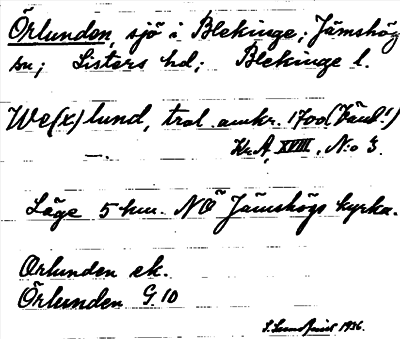 Örlunden, sjö i Blekinge; Jämshög
sn; Listers hd; Blekinge l.
We(x)lund, trol. omkr. 1700
Kr. A, XVIII, N:o 3.
Läge 5 km. NO Jämshögs kyrka.
Orlunden ek.
Örlunden G 10
1936.